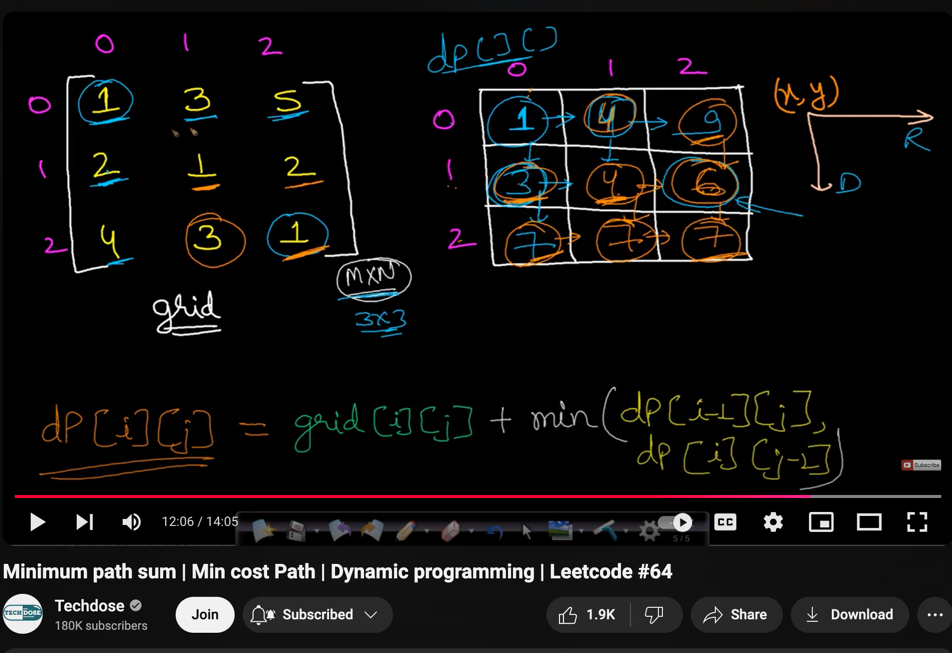 0 1 2
0 1 3 5
1 2 1 2
2 4 3 1
grid
MXN
3X3
dp[][]
0 1 2
0 1 4 9
1 3 4 6
2 7 7 7
(x,y)
R
D
dp[i][j] = grid[i][j] + min(dp[i-1][j],
dp[i][j-1])
Subscribe
12:06 / 14:05
CC
5/5
Minimum path sum | Min cost Path | Dynamic programming | Leetcode #64
TECH DOSE
Techdose
180K subscribers
Join
Subscribed
1.9K
Share
Download